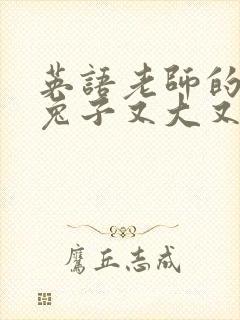 英語老師的
兔子又大又
鷹丘志成